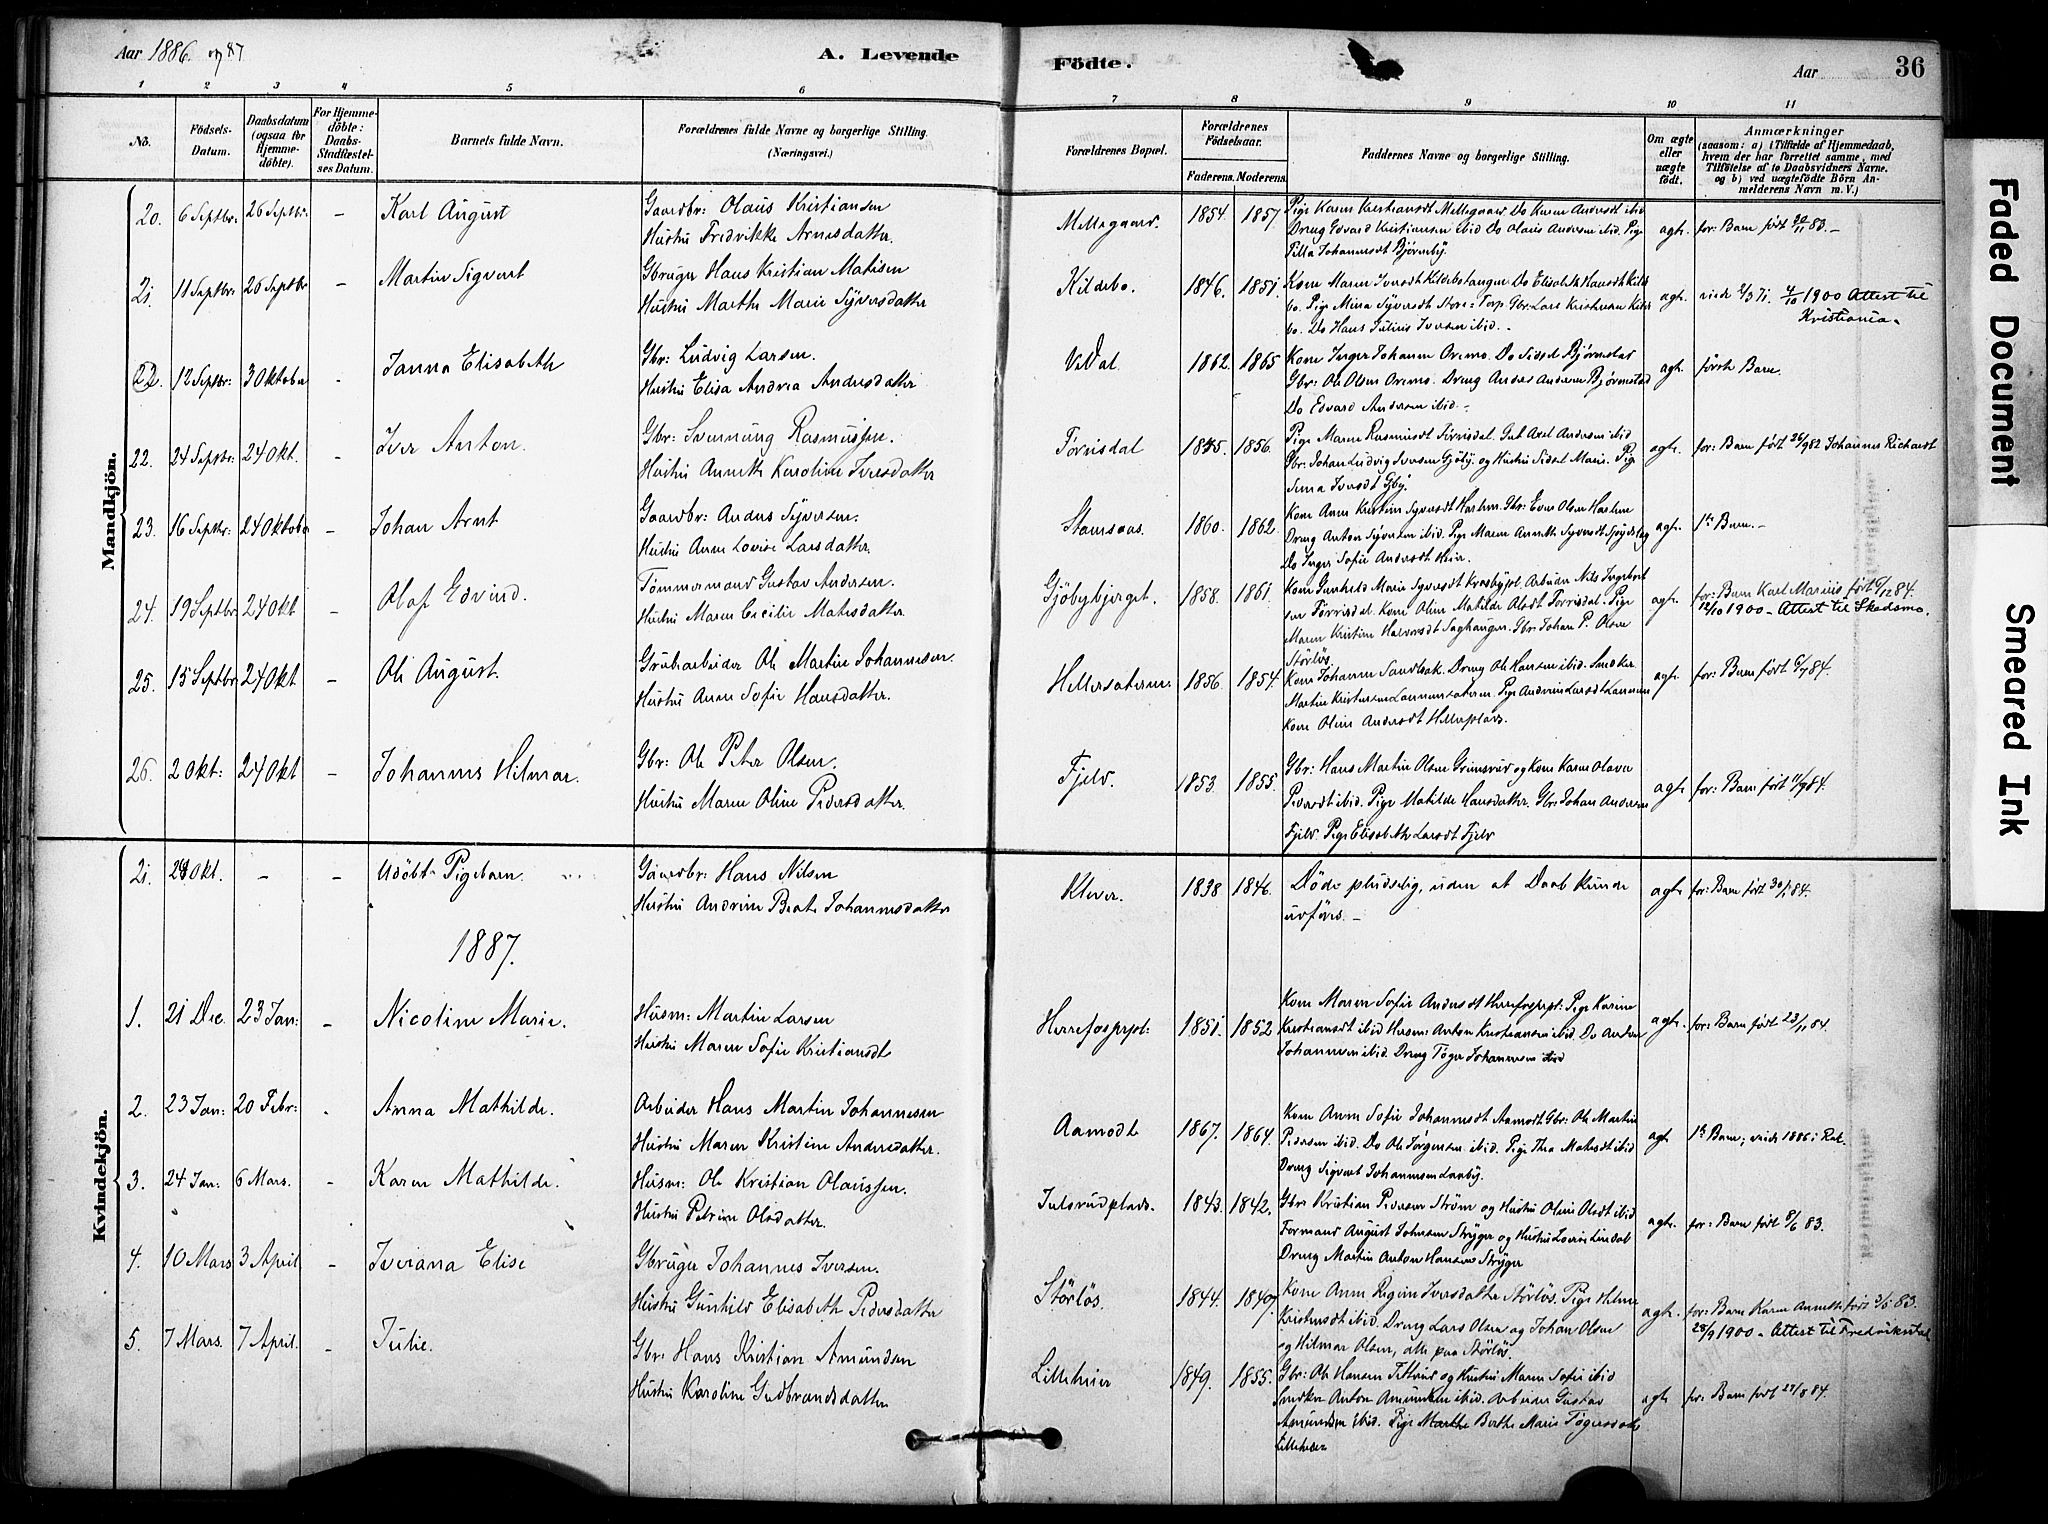 Aar 1886. og 87
A. Levende
Födte.
Aar
36
1 2 3 4 5 6 7 8 9 10 11
No.
Födsels-Datum.
Daabsdatum (ogsaa for Hjemme-döbte).
For Hjemme-döbte: Daabs-Stadfæstel-ses Datum.
Barnets fulde Navn.
Forældrenes fulde Navne og borgerlige Stilling. (Næringsvei.)
Forældrenes Bopæl.
Forældrenes Födselsaar.
Faderens. Moderens.
Faddernes Navne og borgerlige Stilling.
Om ægte eller uægte födt.
Anmærkninger
(saasom: a) i Tilfælde af Hjemmedaab, hvem der har forrettet samme, med Tilföielse af to Daabsvidners Navne, og b) ved uægtefödte Börn An-melderens Navn m. V.)
Mandkjön.
20. 6 Septbr: 26 Septbr: - Karl August
Gaardbr: Olaus Kristiansen
Hustru Fredrikke Arnesdatter.
Mellegaard. 1854. 1857.
Pige Karen Kristiansdt Mellegaard Do Karen Andersdt ibid
Dreng Edvard Kristiansen ibid Do Olaus Andersen ibid. Pige
Johannesdt Bjørneby.
ægte. for: Barn født 30/11 83. -
21. 11 Septbr: 26 Septbr - Martin Sigvart
Gbruger Hans Kristian Matisen
Hustru Marthe Marie Syversdatter
Kildebo. 1846. 1851.
Kone Maren Iversdt Kildebotangen Do Elisabeth Hansdt Kilde
bo. Pige Mina Syversdt Store-Torp Gbr: Lars Kristensen Kilde
bo. Do Hans Julius Iversen ibid. -
ægte. viede 2/3 71. 4/10 1900 Attest til
Kristiania.
22. 12 Septbr: 3 Oktober - Janna Elisabeth
Gbr: Ludvig Larsen.
Hustru Elisa Andrea Andersdatter
V. Dal. 1862. 1865
Kone Inger Johanne Oremo. Do Sidsel Bjørnstad
Gbr: Ole Olsen Oremo. Dreng Anders Andersen Bjørnstad
Do Edvard Andersen ibid. -
ægte. første Barn.
22. 24 Septbr: 24 Okt. - Iver Anton.
Gbr: Svennung Rasmussen.
Hustru Annette Karoline Iversdatter
Tørrisdal 1855. 1856.
Pige Maren Rasmusdt Tørrisdal. Gut Axel Andersen ibid
Gbr: Johan Ludvig Iversen Gjøby. og Hustru Sidsel Marie. Pige
Iversdt Gjby.
ægte. for: Barn født 26/9 82 Johannes Richardt
23. 16 Septbr: 24 Oktober - Johan Arnt
Gaardbr: Anders Syversen.
Hustru Anne Lovise Larsdatter.
1860. 1862.
Kone Anne Kristine Syversdt Harlem. Gbr: Even Olsen Harlem
Dreng Anton Syversen ibid. Pige Maren Annette Syversdt
Do Inger Sofie Andersdt
ægte. 1te Barn. -
24. 19 Septbr 24 Okt - Olaf Edvind.
Tømmermand Gustav Andersen.
Hustru Maren Cecilie Matisdatter.
Gjöbybjerget. 1858. 1861.
Kone Gunhild Marie Syversdt Krosbypl. Arbeider Nils Ingebret
sen Tørrisdal. Kone Oline Matilde Olsdt Torrisdal. Pige
Maren Kristine Halvorsdt Saghaugen. Gbr: Johan P. Olsen
Störlös
ægte. for: Barn Karl Marius født 9/12 84.
12/10 1900 - Attest til Skedsmo.
25. 15 Septbr 24 Okt - Ole August.
Grubearbeider Ole Martin Johannesen.
Hustru Anne Sofie Hansdatter.
Hellesæteren. 1856. 1854.
Kone Johanne Sandbak. Dreng Ole Hansen ibid. Snedker
Martin Kristensen Pige Andrine Larsdt
Kone Oline Andersdt Helleplads.
ægte. for: Barn født 6/7 84.
26. 2 Okt: 24 Okt - Johannes Hilmar.
Gbr: Ole Peter Olsen.
Hustru Maren Oline Pedersdatter.
Fjeld. 1853. 1855.
Gbr: Hans Martin Olsen og Kone Karen Olava
Pedersdt ibid. Pige Matilde Hansdatter. Gbr: Johan Andersen
Fjeld. Pige Elisabeth Larsdt Fjeld
ægte for: Barn født 11/9 84.
Kvindekjön.
21. 28 Okt. - - Udöbt Pigebarn
Gaardbr: Hans Nilsen
Hustru Andrine Beate Johannesdatter
Klever. 1838 1846.
Döde pludselig, uden at Daab kunde
udföres. -
ægte for: Barn født 30/1 84.
1887.
1. 21 Dec. 23 Jan: - Nicoline Marie.
Husm: Martin Larsen
Hustru Maren Sofie Kristiansdt
Herrefospspl: 1851. 1852
Kone Maren Sofie Andersdt Herrefospspl: Pige Karine
Kristiansdt ibid Husm: Anton Kristiansen ibid. Do Anders
Johannesen ibid. Dreng Töger Johannesen ibid
ægte. for: Barn født 23/11 84.
2. 23 Jan: 20 Febr: - Anna Mathilde.
Arbeider Hans Martin Johannesen
Hustru Maren Kristine Andersdatter.
Aamodt 1867. 1864.
Kone Anne Sofie Johannesdt Aamodt Gbr: Ole Martin
Pedersen ibid. Do Ole Jörgensen ibid. Pige Thea Matisdt ibid
Dreng Sigvart Johannesen Laaby.
ægte 1te Barn; viede 1886 i
3. 24 Jan: 6 Mars. - Karen Mathilde.
Husm: Ole Kristian Olaussen.
Hustru Petrine Olsdatter.
Julsrudplads. 1843. 1842.
Gbr: Kristian Pedersen Ström og Hustru Oline Olsdt ibid
Formand August Johnsen Stryger og Hustru Lovise Lindal
Dreng Martin Anton Hansen Stryger
ægte. for: Barn født 8/6 83.
4. 10 Mars 3 April - Iverana Elise
Gbruger Johannes Iversen.
Hustru Gunhild Elisabeth Pedersdatter
Störlös. 1844. 1847.
Kone Anne Regine Iversdatter Störlös. Pige Helene
Kristensdt ibid. Dreng Lars Olsen og Johan Olsen
og Hilmar Olsen, alle paa Störlös.
ægte. for: Barn Karen Annette født 3/1 83.
28/9 1900 - Attest til Fredrikstad
5. 7 Mars. 7 April. - Julie.
Gbr: Hans Kristian Amundsen
Hustru Karoline Gudbrandsdatter
Lilleheier 1849. 1855.
Gbr: Ole Hansen og Hustru Maren Sofie ibid
Snedker Anton Amundsen ibid. Arbeider Gustav
Amundsen ibid. Pige Marthe Berthe Marie Tögersdatter
Lilleheier
ægte for: Barn født
Faded Document
Smeared Ink